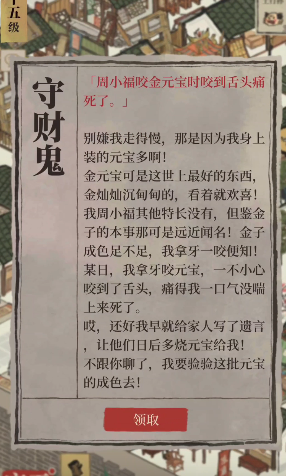 十五级
守财鬼
「周小福咬金元宝时咬到舌头痛
死了。」
别嫌我走得慢，那是因为我身上
装的元宝多啊！
金元宝可是这世上最好的东西，
金灿灿沉甸甸的，看着就欢喜！
我周小福其他特长没有，但鉴金
子的本事那可是远近闻名！金子
成色足不足，我拿牙一咬便知！
某日，我拿牙咬元宝，一不小心
咬到了舌头，痛得我一口气没喘
上来死了。
哎，还好我早就给家人写了遗言
，让他们日后多烧元宝给我！
不跟你聊了，我要验验这批元宝
的成色去！
领取